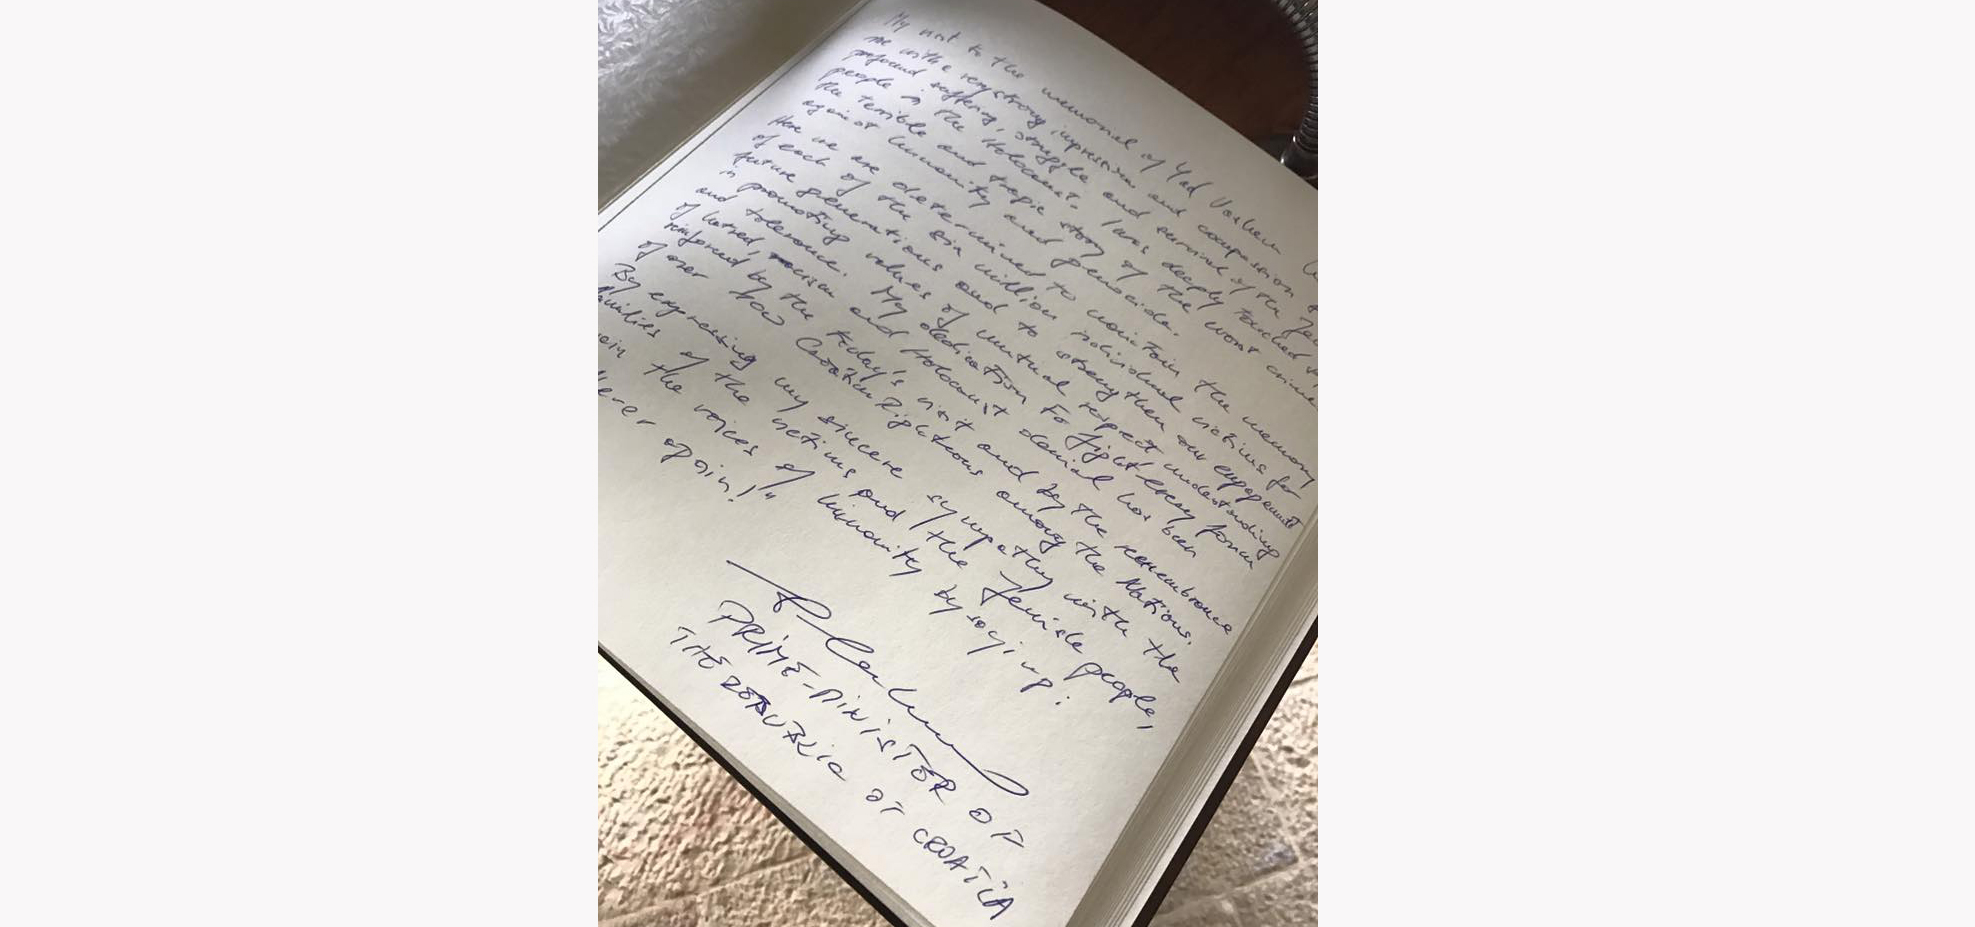 My visit to the memorial of Yad Vashem
me with a very strong impression and compassion
profound suffering, struggle and survival of the
people in the Holocaust. I was deeply touched
the terrible and tragic story of the worst crime
against humanity and genocide.
Here we are determined to maintain the memory
of each of the six million individual victims for
future generations and to strengthen our engagement
in promoting values of mutual respect understanding
and tolerance. My dedication to fight every form
of hatred, racism and Holocaust denial has been
reinforced by the today's visit and by the remembrance
of over 100 Croatian Righteous among the Nations.
By expressing my sincere sympathy with the
families of the victims and the Jewish people,
the voices of humanity by saying:
again!"
PRIME-MINISTER OF
THE REPUBLIC OF CROATIA